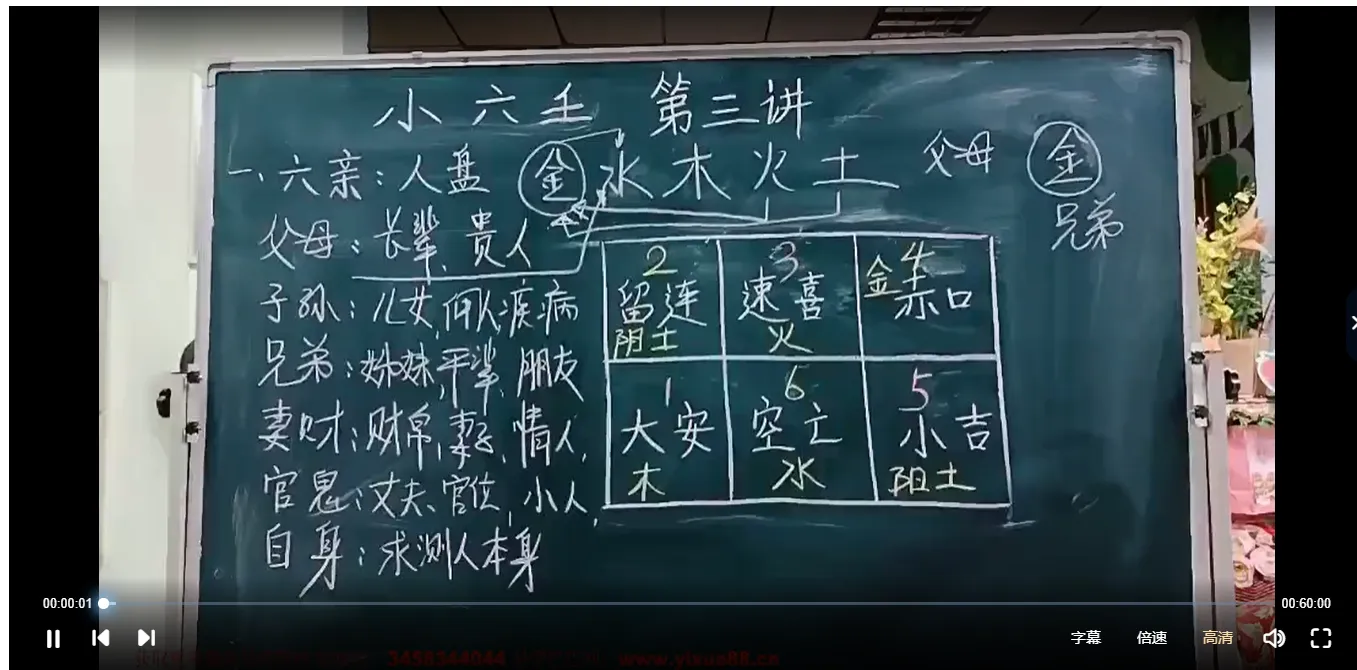 小六壬 第三讲
一、六亲：人盘 金 水 木 火 土 父母 金
兄弟
父母：长辈、贵人
子孙：儿女，佣人，疾病
兄弟：姊妹，平辈、朋友
妻财：财帛，妻子、情人，
官鬼：丈夫、官位，小人，
自身：求测人本身
2 3 4
留连 速喜 金 赤口
阴土 火
1 6 5
大安 空亡 小吉
木 水 阳土
00:00:01 00:60:00
字幕 倍速 高清
3458344044 www.yixue88.cn